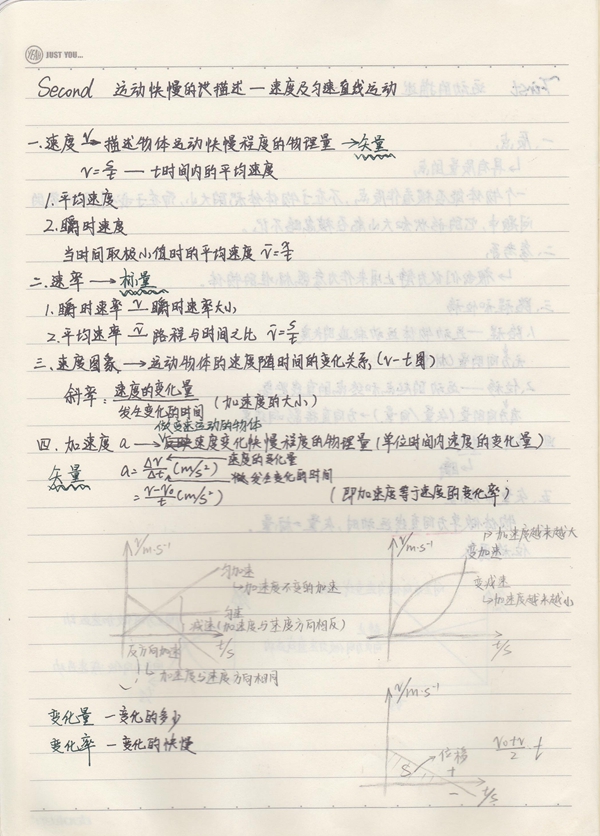 JUST YOU...
Second 运动快慢的描述—速度及匀速直线运动
一.速度 v → 描述物体运动快慢程度的物理量 → 矢量
v = s/t — t时间内的平均速度
1.平均速度
2.瞬时速度
当时间取极小值时的平均速度 v̄ = s/t
二.速率 → 标量
1.瞬时速率 v→ 瞬时速率大小
2.平均速率 v̄→ 路程与时间之比 v̄ = s/t
三.速度图象 → 运动物体的速度随时间的变化关系 (v-t图)
斜率: 速度的变化量/发生变化的时间 (加速度的大小)
做变速运动的物体
四.加速度 a → 反映速度变化快慢程度的物理量 (单位时间内速度的变化量)
矢量 a = Δv/Δt (m/s²) 速度的变化量
发生变化的时间
= v-v₀/t (m/s²) (即加速度等于速度的变化率)
v/m·s⁻¹
匀加速
↳加速度不变的加速
匀速
减速(加速度与速度方向相反)
t/s
反方向加速
加速度与速度方向相同
v/m·s⁻¹
加速度越来越大
变加速
变减速
↳加速度越来越小
t/s
变化量 — 变化的多少
变化率 — 变化的快慢
v/m·s⁻¹
位移
S
+
−
t/s
v₀+v/2 · t